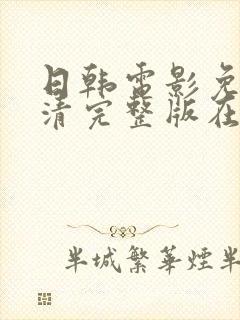 日韩电影免
清完整版在
半城繁華煙半